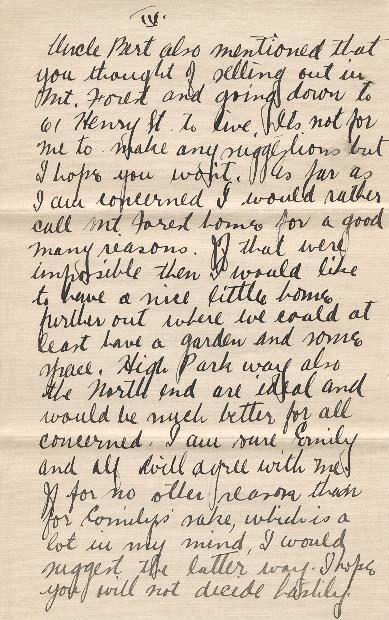 IV.
Uncle Bert also mentioned that
you thought of selling out in
Mt. Forest and going down to
61 Henry St. to live. Its not for
me to make any suggestions but
I hope you won't. As far as
I am concerned I would rather
call Mt. Forest home for a good
many reasons. If that were
impossible then I would like
to have a nice little home
further out where we could at
least have a garden and some
space. High Park way also
the North end are ideal and
would be much better for all
concerned. I am sure Emily
and all will agree with me.
If for no other reason than
for Emily's sake, which is a
lot in my mind, I would
suggest the latter way. I hope
you will not decide hastily.